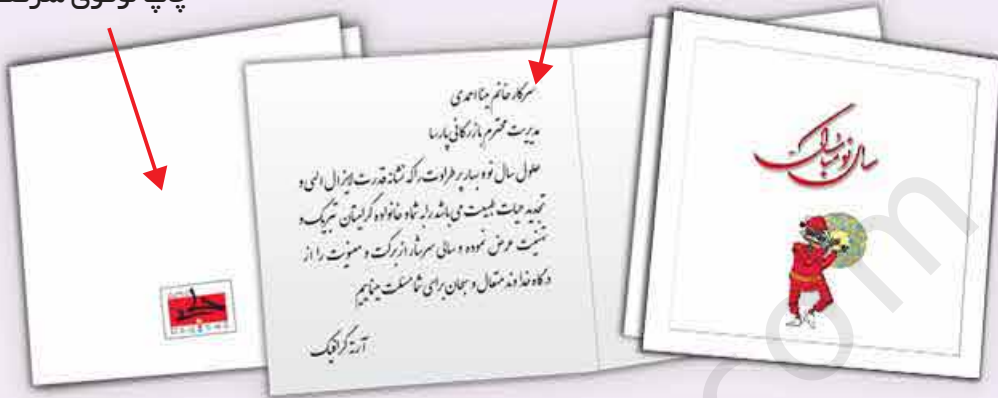 چاپ لوگوی شرکت
سرکار خانم مینا احمدی
مدیریت محترم بازرگانی پارسا
حلول سال نو و بهار پر طراوت را که نشانه قدرت لایزال الهی و
تجدید حیات طبیعت می باشد را به شما و خانواده گرامیتان تبریک و
تهنیت عرض نموده و سالی سرشار از برکت و معنویت را از
درگاه خداوند متعال و سبحان برای شما مسئلت مینماییم
آرته گرافیک
سال نو مبارک
com